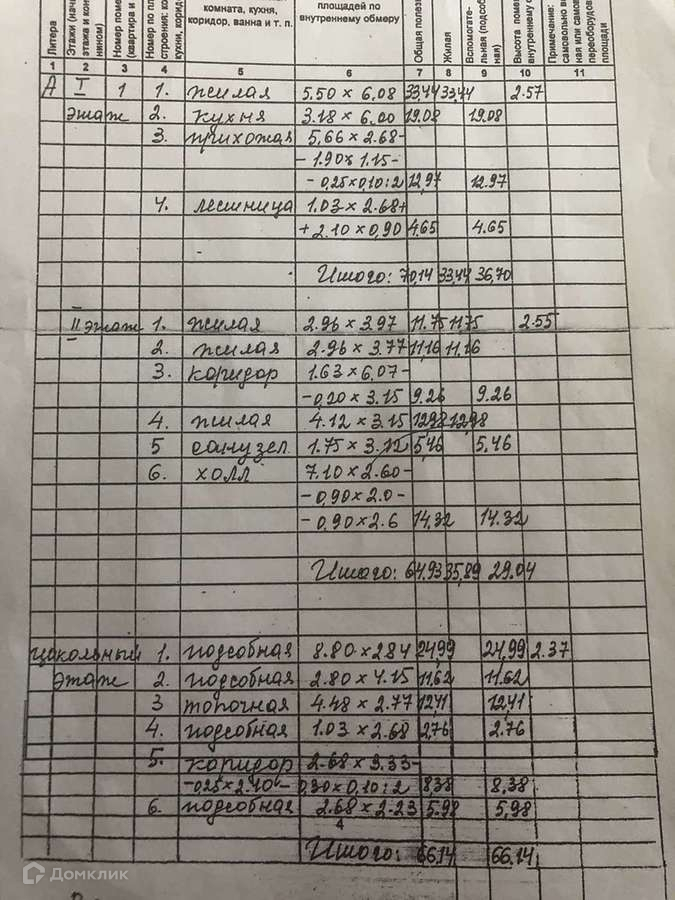 Литера
Этажи (нач
этажа и кон
нином)
Номер поме
(квартира и
Номер по пл
строения: ко
кухни, корид
комната, кухня,
коридор, ванна и т. п.
площадей по
внутреннему обмеру
Общая полез
Жилая
Вспомогате-
льная (подсоб
ная)
Высота поме
внутреннему о
Примечание:
самовольно в
ная или самов
переоборудов
площади
1 2 3 4 5 6 7 8 9 10 11
А I 1 1. жилая 5.50 × 6.08 33,44 33,44 2.57
этаж 2. кухня 3.18 × 6.00 19.08 19.08
3. прихожая 5,66 × 2.68-
- 1.90 × 1.15-
- 0,25 × 0,10 : 2 12,97 12.97
4. лестница 1.03 × 2.68+
+ 2.10 × 0,90 4.65 4.65
Итого: 70,14 33,44 36,70
II этаж 1. жилая 2.96 × 3.97 11.75 11,75 2.55
2. жилая 2.96 × 3.77 11,16 11,16
3. коридор 1.63 × 6.07-
-0,20 × 3.15 9.26 9.26
4. жилая 4.12 × 3.15 12,98 12,98
5 санузел. 1.75 × 3.12 5,46 5,46
6. холл 7.10 × 2.60-
- 0,90 × 2.0-
- 0,90 × 2.6 14,32 14.32
Итого: 64.93 35,89 29.04
цокольный 1. подсобная 8.80 × 2.84 24,99 24,99 2.37
этаж 2. подсобная 2.80 × 4.15 11,62 11.62
3 топочная 4.48 × 2.77 12,41 12,41
4. подсобная 1.03 × 2.68 2,76 2.76
5. коридор 2.68 × 3.33-
-0,25 × 2.10 - 0,30 × 0,10 : 2 8,38 8,38
6. подсобная 2.68 × 2.23 5.98 5,98
4
Итого: 66,14 66.14
Домклик